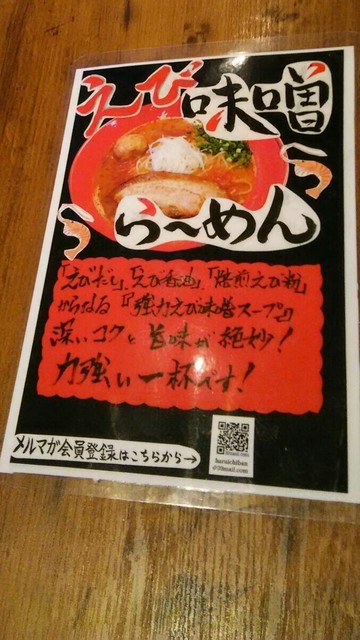 えび味噌
らーめん
「えびだし」、「えび香油」、「焙煎えび粉」
からなる『強力えび味噌スープ』
深いコクと旨味が絶妙!
力強い一杯です!
メルマガ会員登録はこちらから→
haruichiban
@39mail.com